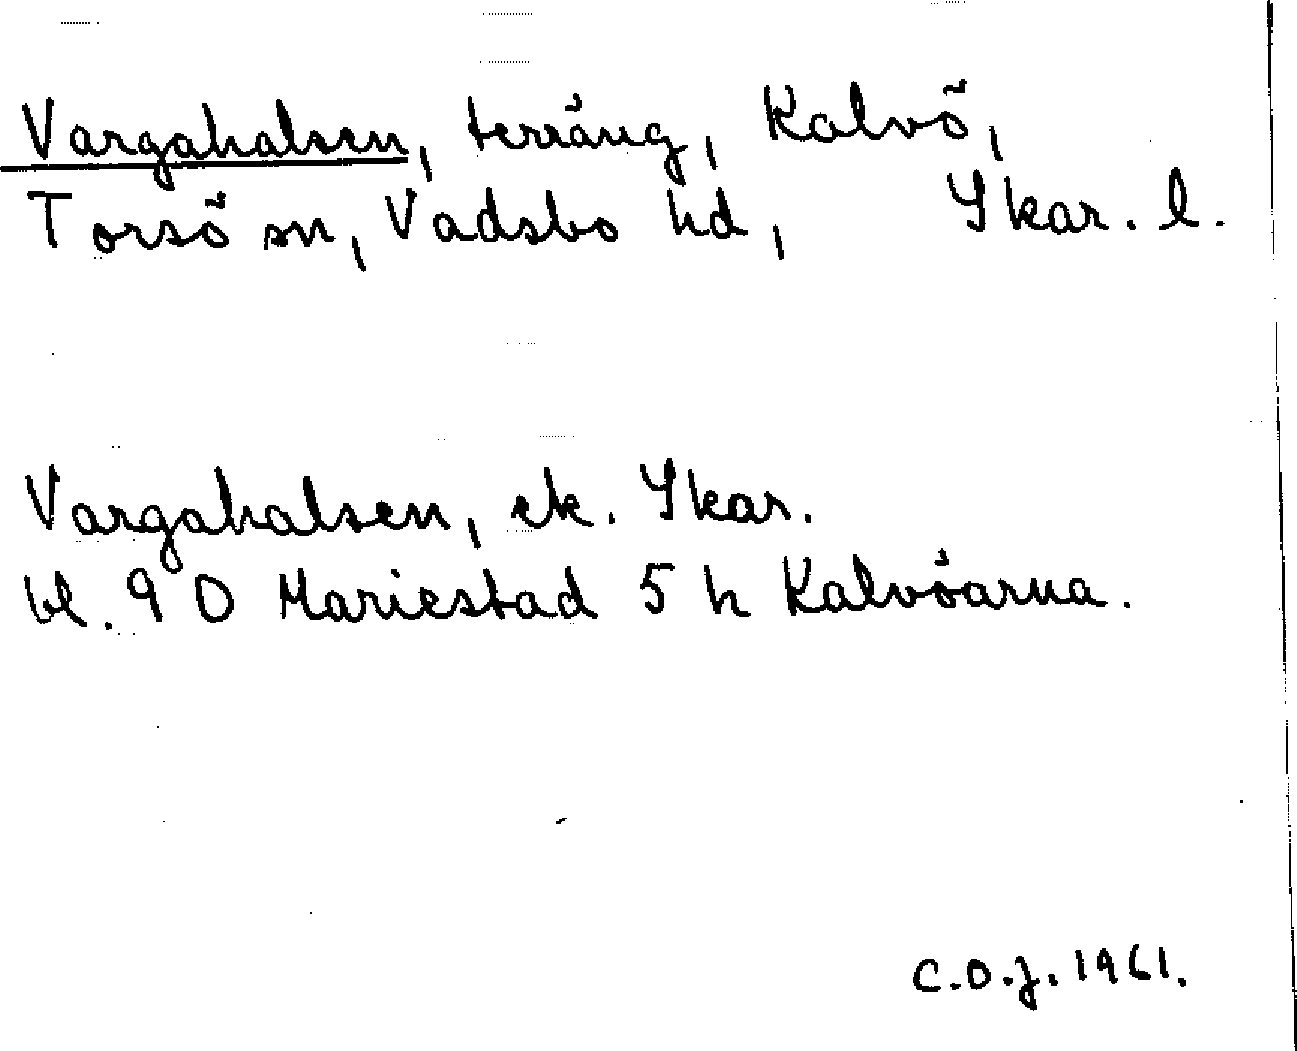 Vargahalsen, terräng, Kalvö,
Torsö sn, Vadsbo hd, Skar. l.
Vargahalsen, ek. Skar.
bl. 9 D Mariestad 5 h Kalvöarna.
C.O.J. 1961.